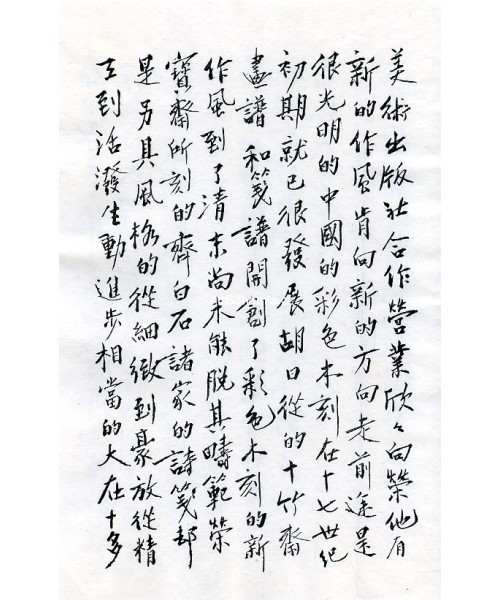 美術出版社合作營業欣々向榮他有
新的作風肯向新的方向走前途是
很光明的中國的彩色木刻在十七世紀
初期就已很發展胡曰從的十竹齋
畫譜和箋譜開創了彩色木刻的新
作風到了清末尚未能脫其疇範榮
寶齋所刻的齊白石諸家的詩箋卻
是另具風格的從細緻到豪放從精
工到活潑生動進步相當的大在十多